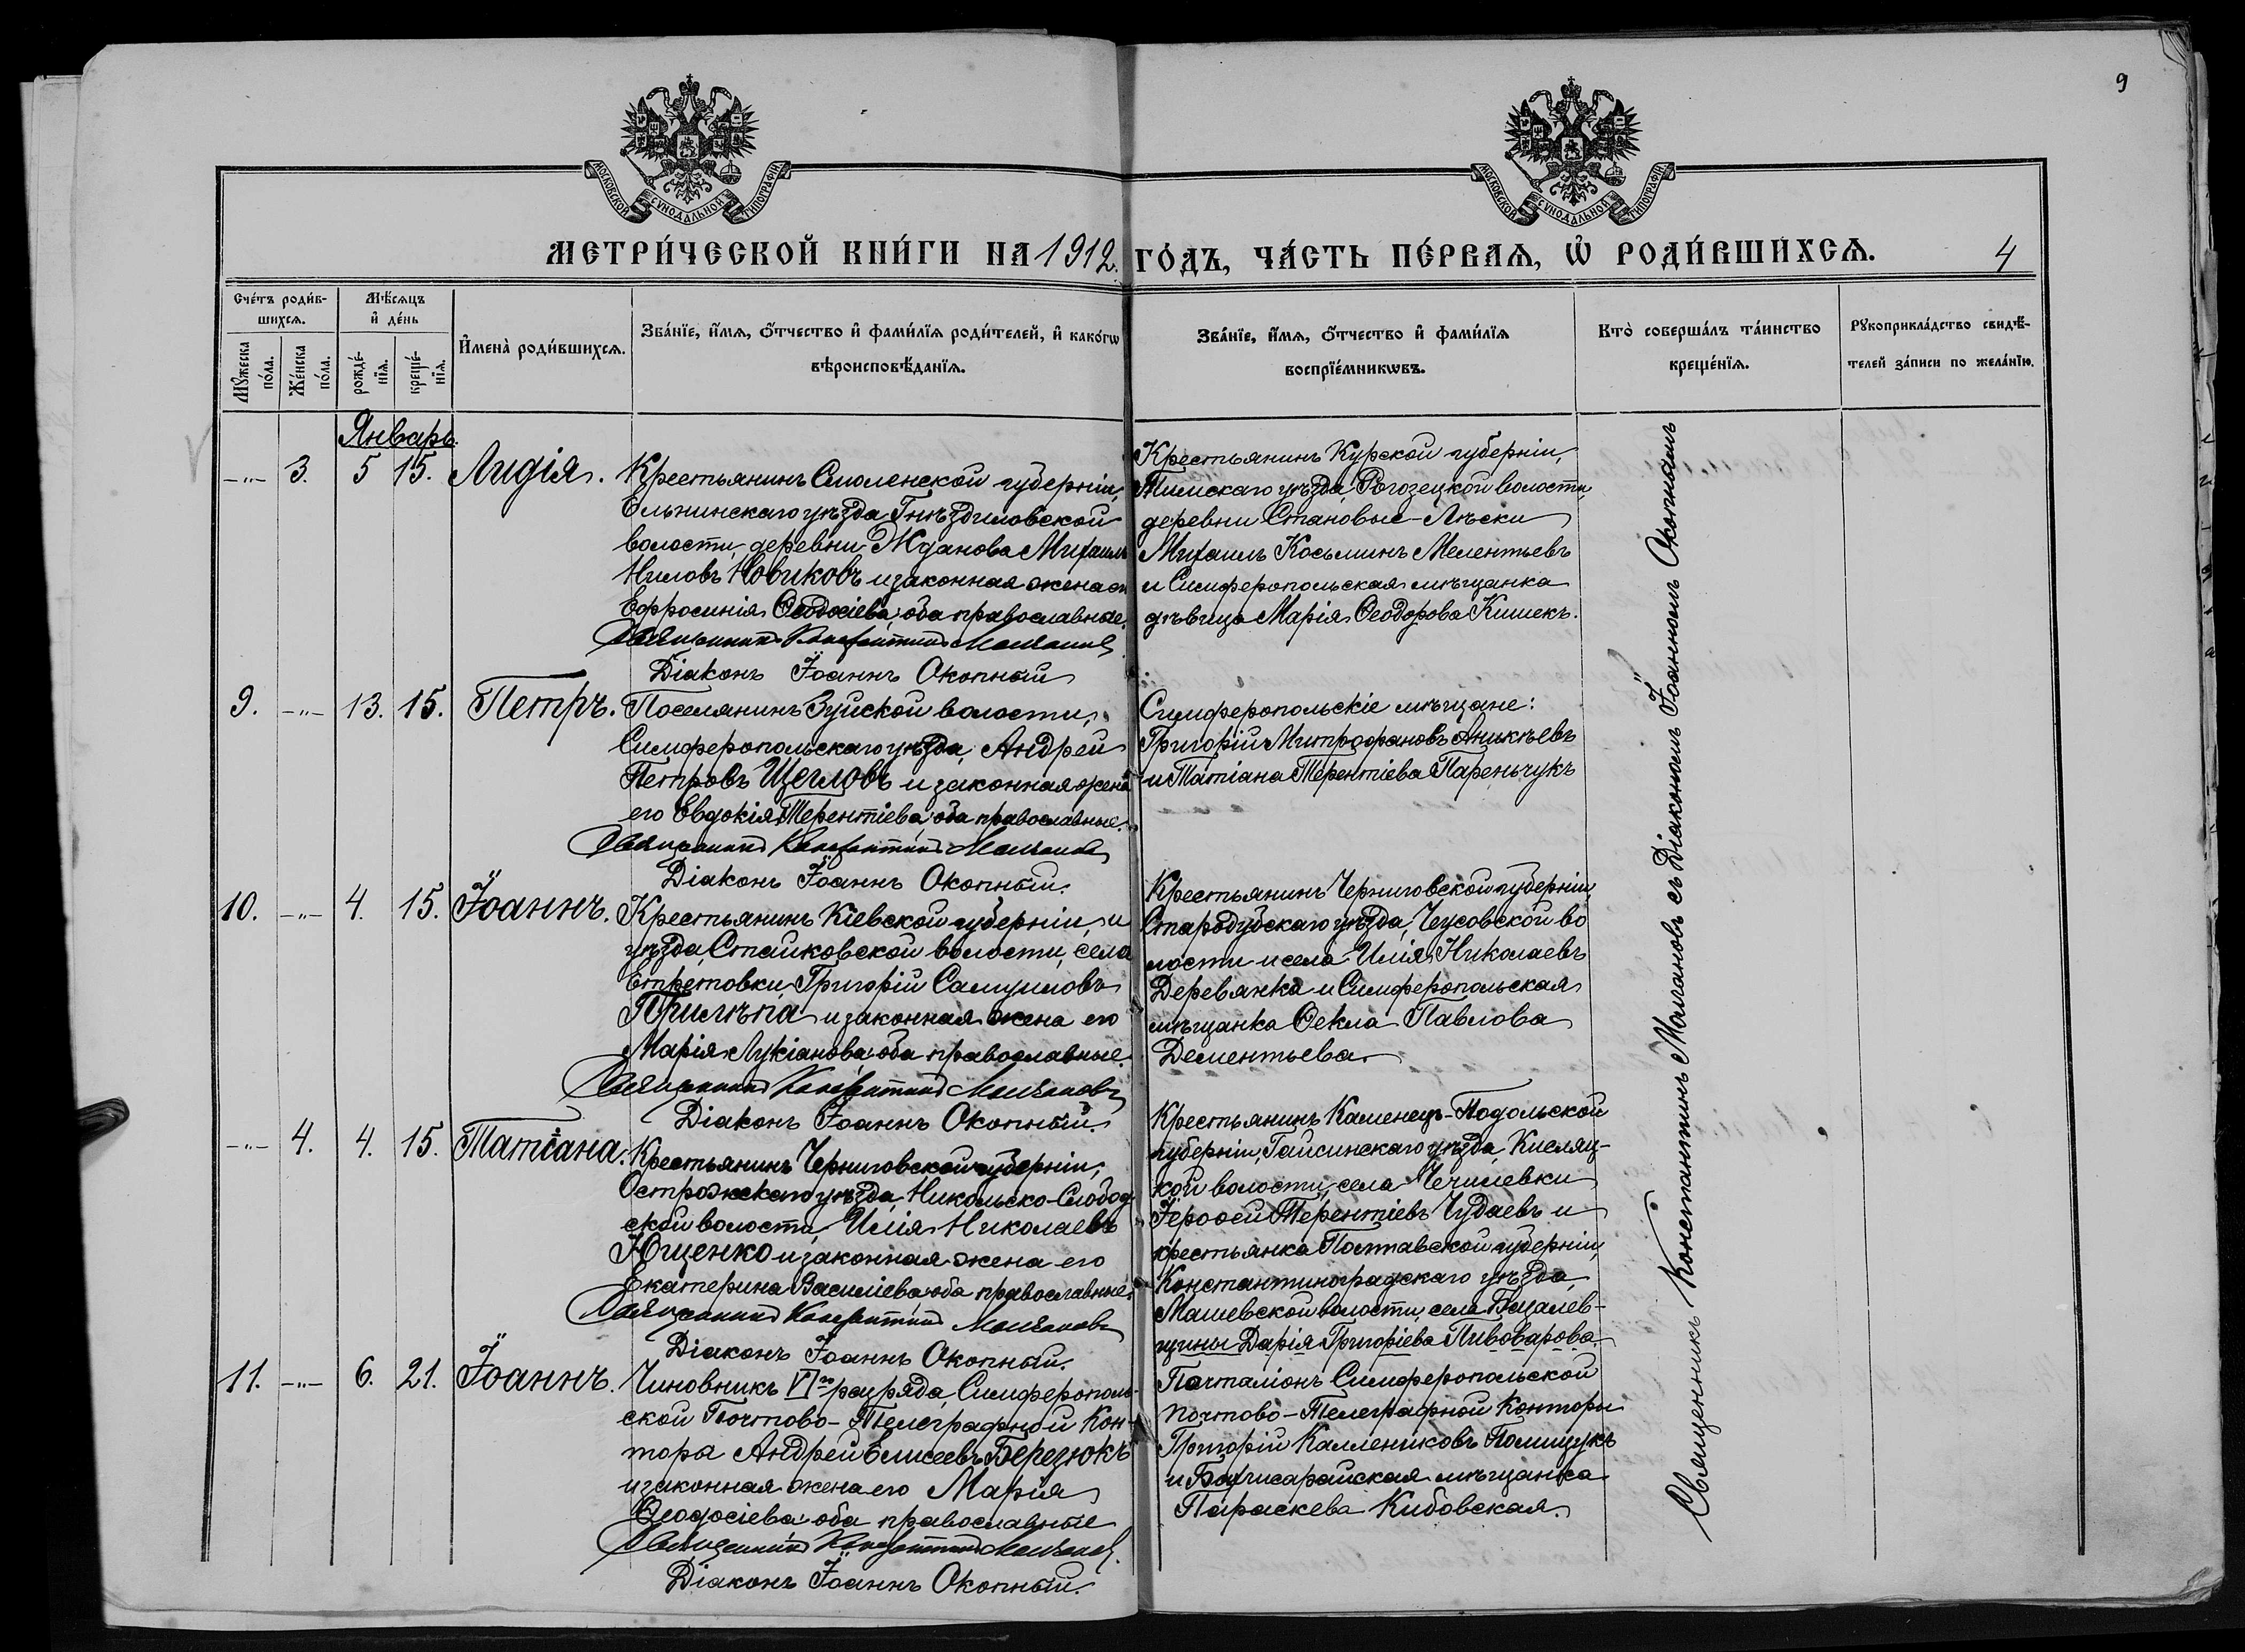 9
МОСКОВСКОЙ СѴНОДАЛЬНОЙ ТИПОГРАФІИ
МОСКОВСКОЙ СѴНОДАЛЬНОЙ ТИПОГРАФІИ
МЕТРИ́ЧЕСКОЙ КНИ́ГИ НА 1912. ГО́ДЪ, ЧА́СТЬ ПЕ́РВАѦ, Ѡ҆ РОДИ́ВШИХСѦ.
4
Сче́тъ роди́в-
шихсѧ.
Мѣ́сѧцъ
и҆ де́нь
Мꙋ́жеска
по́ла.
Же́нска
по́ла.
рожде́-
нїѧ.
креще́-
нїѧ.
И҆мена̀ роди́вшихсѧ.
Зва́нїе, и҆́мѧ, ѻ҆́тчество и҆ фами́лїѧ роди́телей, и҆ како́гѡ
вѣроисповѣ́данїѧ.
Зва́нїе, и҆́мѧ, ѻ҆́тчество и҆ фами́лїѧ
воспрїе́мникѡвъ.
Кто̀ соверша́лъ та́инство
креще́нїѧ.
Рꙋкоприкла́дство свидѣ́-
телей за́писи по жела́нїю.
Январь.
-"- 3. 5 15. Лидія.
Крестьянинъ Смоленской губерніи,
Ельнинскаго уѣзда Гнѣздиловской
волости, деревни Жданова Михаилъ
Ниловъ Новиковъ и законная жена его
Ефросинія Ѳеодосіева, оба православные.
Священникъ Константинъ Молчановъ
Діаконъ Іоаннъ Окопный
Крестьянинъ Курской губерніи,
Тимскаго уѣзда, Рогозецкой волости
деревни Становые-Лѣски
Михаилъ Косьминъ Мелентьевъ
и Симферопольская мѣщанка
дѣвица Марія Ѳеодорова Кишекъ.
9. -"- 13. 15. Петръ.
Поселянинъ Зуйской волости,
Симферопольскаго уѣзда, Андрей
Петровъ Щегловъ и законная жена
его Евдокія Терентіева, оба православные.
Священникъ Константинъ Молчановъ
Діаконъ Іоаннъ Окопный.
Симферопольскіе мѣщане:
Григорій Митрофановъ Аникѣевъ
и Татіана Терентіева Пареньчукъ
10. -"- 4. 15. Іоаннъ.
Крестьянинъ Кіевской губерніи, и
уѣзда, Стайковской волости, села
Стретовки Григорій Самуиловъ
Прилѣпа и законная жена его
Марія Лукіанова, оба православные.
Священникъ Константинъ Молчановъ
Діаконъ Іоаннъ Окопный.
Крестьянинъ Черниговской губерніи,
Стародубскаго уѣзда, Чеусовской во
лости и села Илія Николаевъ
Деревянка и Симферопольская
мѣщанка Ѳекла Павлова
Дементьева.
-"- 4. 4. 15. Татіана.
Крестьянинъ Черниговской губерніи,
Острожскаго уѣзда, Никольско-Слобод
ской волости, Илія Николаевъ
Ющенко и законная жена его
Екатерина Василіева, оба православные.
Священникъ Константинъ Молчановъ
Діаконъ Іоаннъ Окопный.
Крестьянинъ Каменец-Подольской
губерніи, Гайсинскаго уѣзда, Кисляц-
кой волости, села Чечилевки
Іероѳей Терентіевъ Чудаевъ и
крестьянка Полтавской губерніи,
Константиноградскаго уѣзда,
Машевской волости, села
Дарія Григоріева Пивоварова.
11. -"- 6. 21. Іоаннъ.
Чиновникъ VIго разряда, Симферополь-
ской Почтово-Телеграфной Кон-
тора Андрей Елисеевъ Березюкъ
и законная жена его Марія
Ѳеодосіева, оба православные
Священникъ Константинъ Молчановъ.
Діаконъ Іоаннъ Окопный.
Почталіонъ Симферопольской
почтово-Телеграфной Конторы
Григорій Каллениковъ Полищукъ
и Бахчисарайская мѣщанка
Параскева Кибовская.
Священникъ Константинъ Молчановъ съ Діакономъ Іоанномъ Окопнымъ